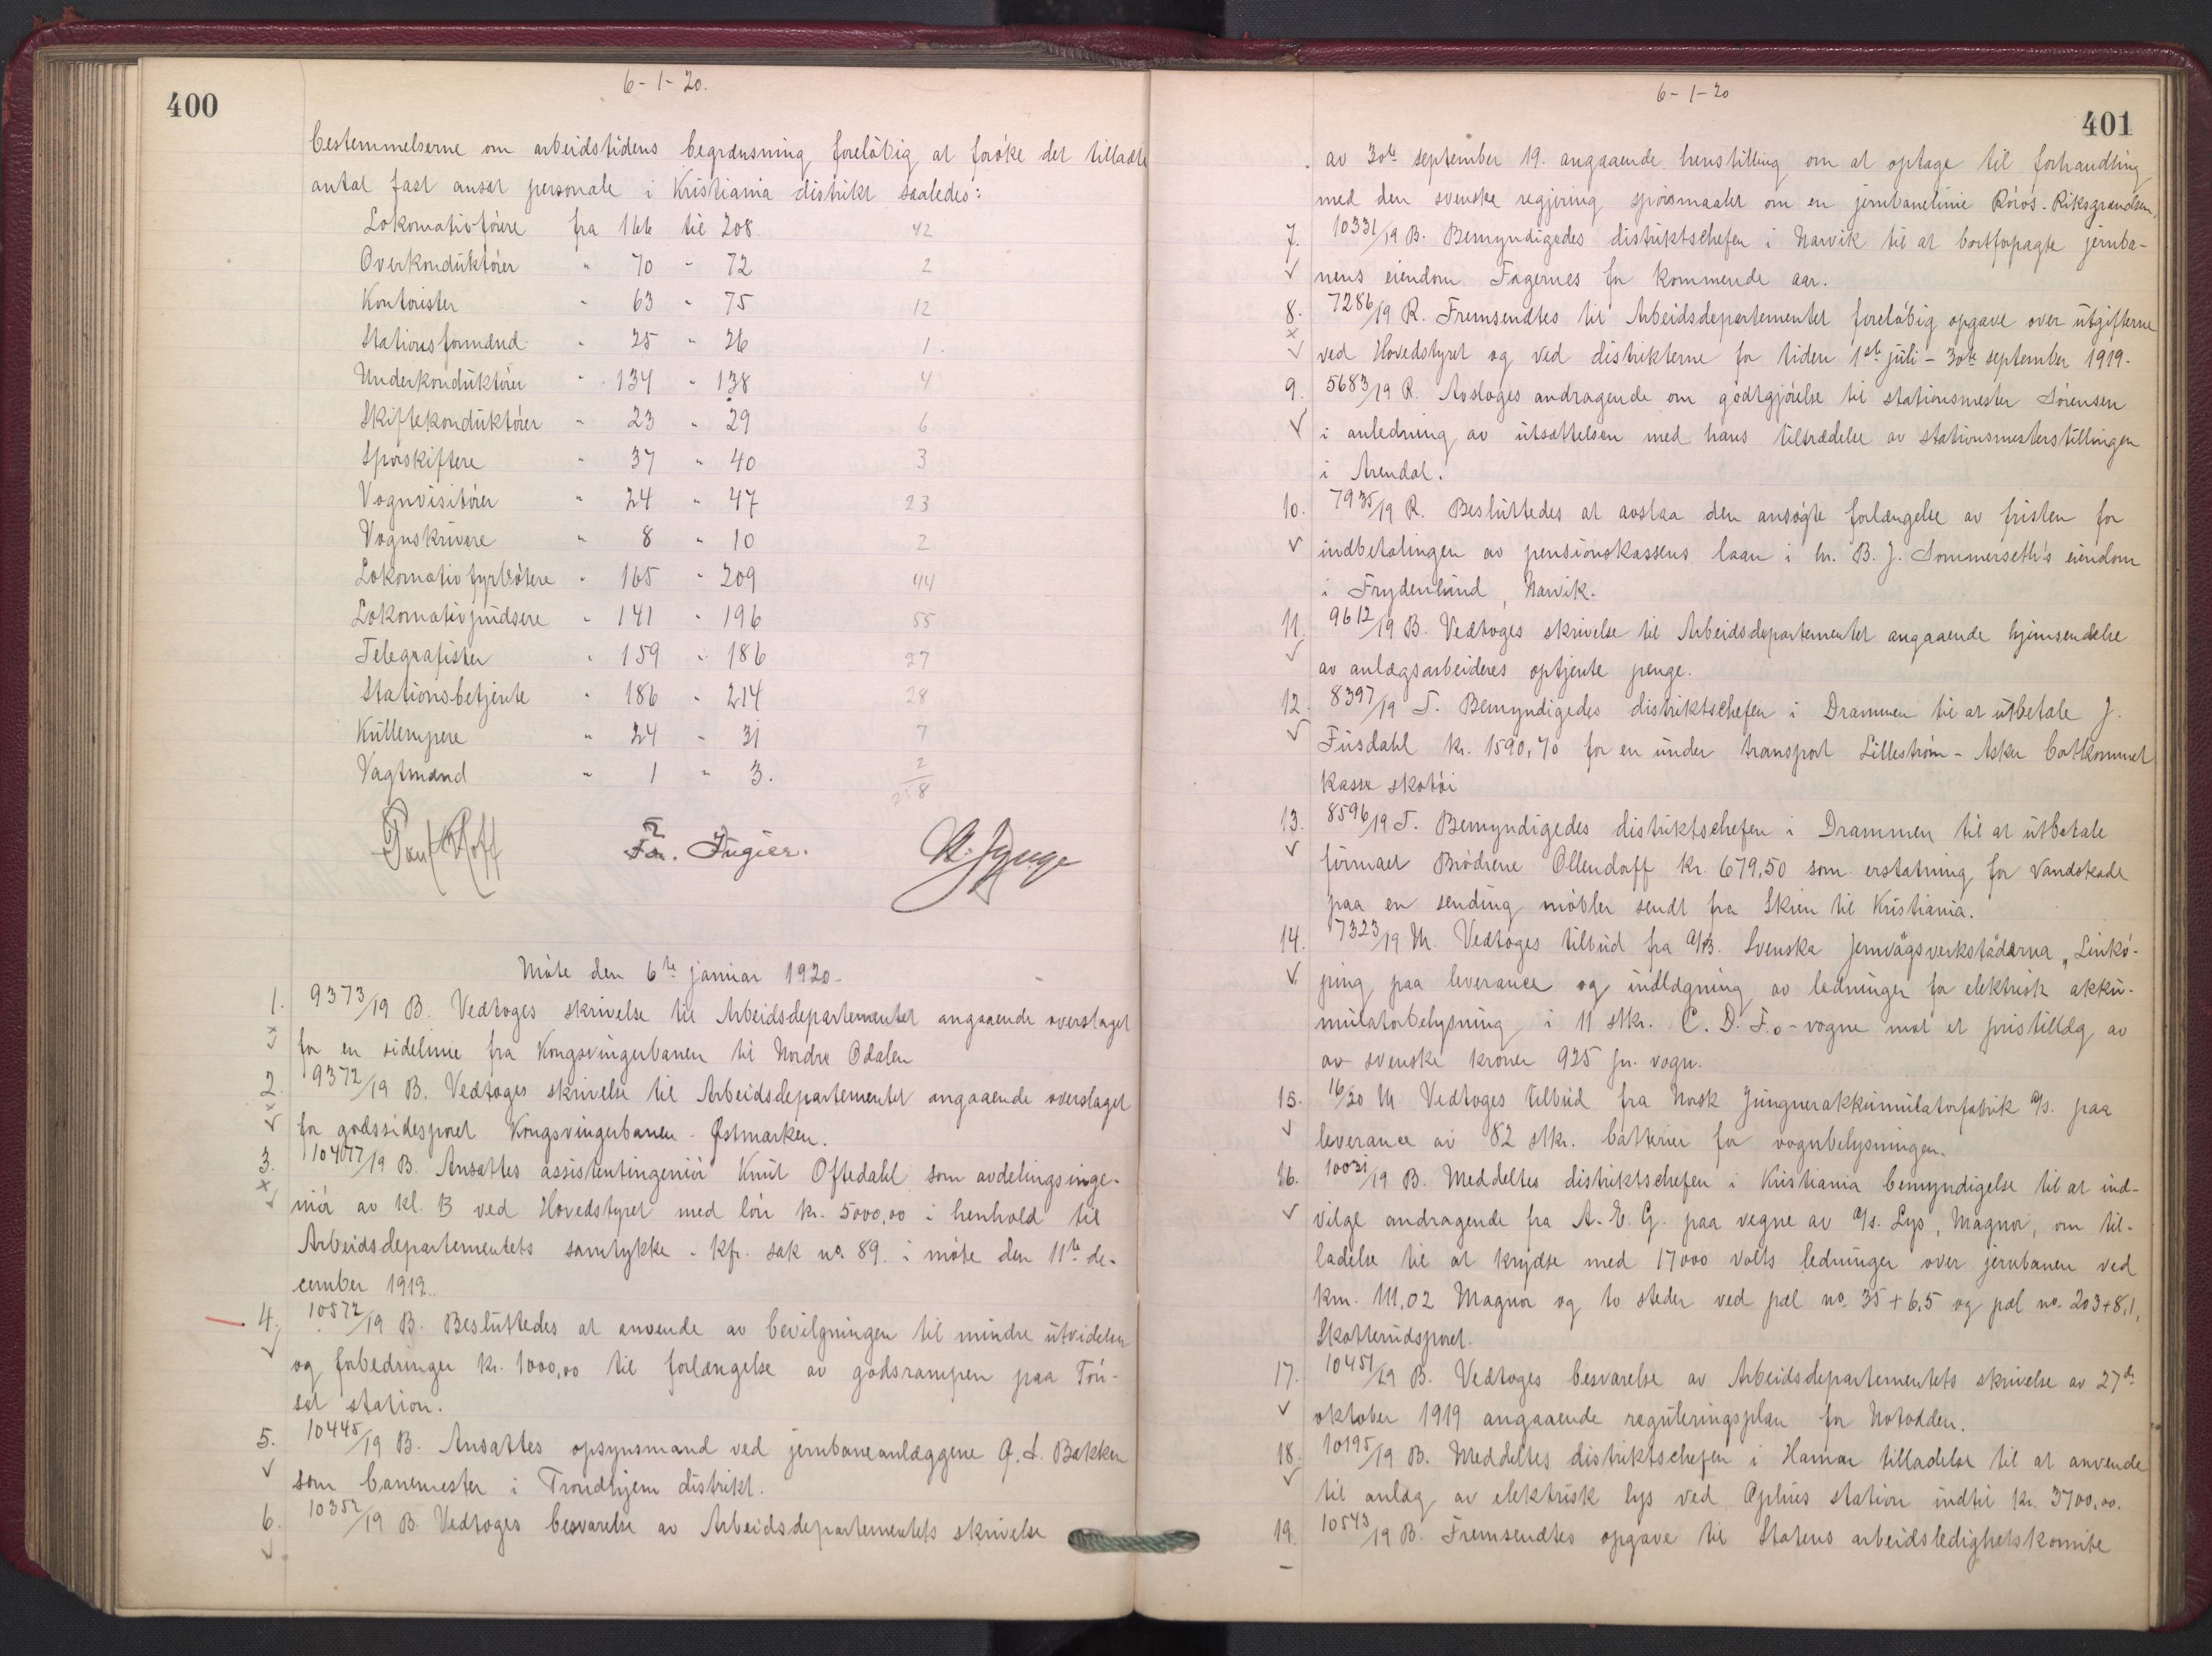 400
6-1-20.
bestemmelserne om arbeidstidens begrænsning foreløbig at forøke det tilladte
antal fast ansat personale i Kristiania distrikt saaledes:
Lokomativførere fra 166 til 208. 42
Overkonduktører " 70 " 72 2
Kontorister " 63 " 75 12
Stationsformænd " 25 " 26 1.
Underkonduktører " 134 " 138 4
Skiftekonduktører " 23 " 29 6
Sporskiftere " 37 " 40 3
Vognvisitører " 24 " 47 23
Vognskrivere " 8 " 10 2
Lokomotivfyrbøtere " 165 " 209 44
Lokomotivpudsere " 141 " 196 55
Telegrafister " 159 " 186 27
Stationsbetjente " 186 " 214 28
Kullempere " 24 " 31 7
Vagtmænd " 1 " 3. 2
258
Møte den 6te januar 1920.
1. 9373/19 B. Vedtoges skrivelse til Arbeidsdepartementet angaaende overslaget
for en sidelinie fra Kongsvingerbanen til Nordre Odalen
2. 9372/19 B. Vedtoges skrivelse til Arbeidsdepartementet angaaende overslaget
for godssidesporet Kongsvingerbanen - Østmarken.
3. 10407/19 B. Ansattes assistentingeniør Knut Oftedahl som avdelingsinge-
niør av kl. B ved Hovedstyret med løn kr. 5000,00 i henhold til
Arbeidsdepartementets samtykke - kfr. sak no. 89 i møte den 11te de-
cember 1919.
4. 10572/19 B. Besluttedes at anvende av bevilgningen til mindre utvidelser
og forbedringer kr. 1000,00 til forlængelse av godsrampen paa Tøn-
set station.
5. 10445/19 B. Ansattes opsynsmand ved jernbaneanlæggene O. L. Bakken
som banemester i Trondhjem distrikt.
6. 10352/19 B. Vedtoges besvarelse av Arbeidsdepartementets skrivelse
6-1-20
401
av 30te september 19. angaaende henstilling om at optage til forhandling
med den svenske regjering spørsmaalet om en jernbanelinie Røros-Riksgrænsen.
7. 10331/19 B. Bemyndigedes distriktschefen i Narvik til at bortforpagte jernba-
nens eiendom Fagernes for kommende aar.
8. 7286/19 R. Fremsendtes til Arbeidsdepartementet foreløbig opgave over utgifterne
ved Hovedstyret og ved distrikterne for tiden 1ste juli - 30te september 1919.
9. 5683/19 R. Avsloges andragende om godtgjørelse til stationsmester Sørensen
i anledning av utsættelsen med hans tiltrædelse av stationsmesterstillingen
i Arendal.
10. 7935/19 R. Besluttedes at avslaa den ansøgte forlængelse av fristen for
indbetalingen av pensionskassens laan i hr. B. J. Sommerseth's eiendom
i Frydenlund, Narvik.
11. 9612/19 B. Vedtoges skrivelse til Arbeidsdepartementet angaaende hjemsendelse
av anlægsarbeideres optjente penge.
12. 8397/19 T. Bemyndigedes distriktschefen i Drammen til at utbetale J.
Fusdahl kr. 1590,70 for en under transport Lillestrøm - Asker bortkommet
kasse skotøi
13. 8596/19 T. Bemyndigedes distriktschefen i Drammen til at utbetale
firmaet Brødrene Ollendorff kr. 679,50 som erstatning for vandskade
paa en sending møbler sendt fra Skien til Kristiania.
14. 7323/19 M. Vedtoges tilbud fra A/B. Svenska Jernvägsverkstäderna, Linkö-
ping paa leverance og indlægning av ledninger for elektrisk akku-
mulatorbelysning i 11 stkr. C. D. Fo-vogne mot et pristillæg av
av svenske kroner 925 pr. vogn.
15. 16/20 M Vedtoges tilbud fra Norsk Jungnerakkumulatorfabrik A/s. paa
leverance av 82 stkr. batterier for vognbelysningen.
16. 10031/19 B. Meddeltes distriktschefen i Kristiania bemyndigelse til at ind-
vilge andragende fra A. E. G. paa vegne av A/s. Lys, Magnor, om til-
ladelse til at krydse med 17000 volts ledninger over jernbanen ved
km. 111,02 Magnor og to steder ved pæl no. 35+6,5 og pæl no. 203+8,1,
Skotterudsporet.
17. 10451/19 B. Vedtoges besvarelse av Arbeidsdepartementets skrivelse av 27de
oktober 1919 angaaende reguleringsplan for Notodden.
18. 10195/19 B. Meddeltes distriktschefen i Hamar tilladelse til at anvende
til anlæg av elektrisk lys ved Oplus station indtil kr. 3700,00.
19. 10543/19 B. Fremsendtes opgave til Statens arbeidsledighetskomite